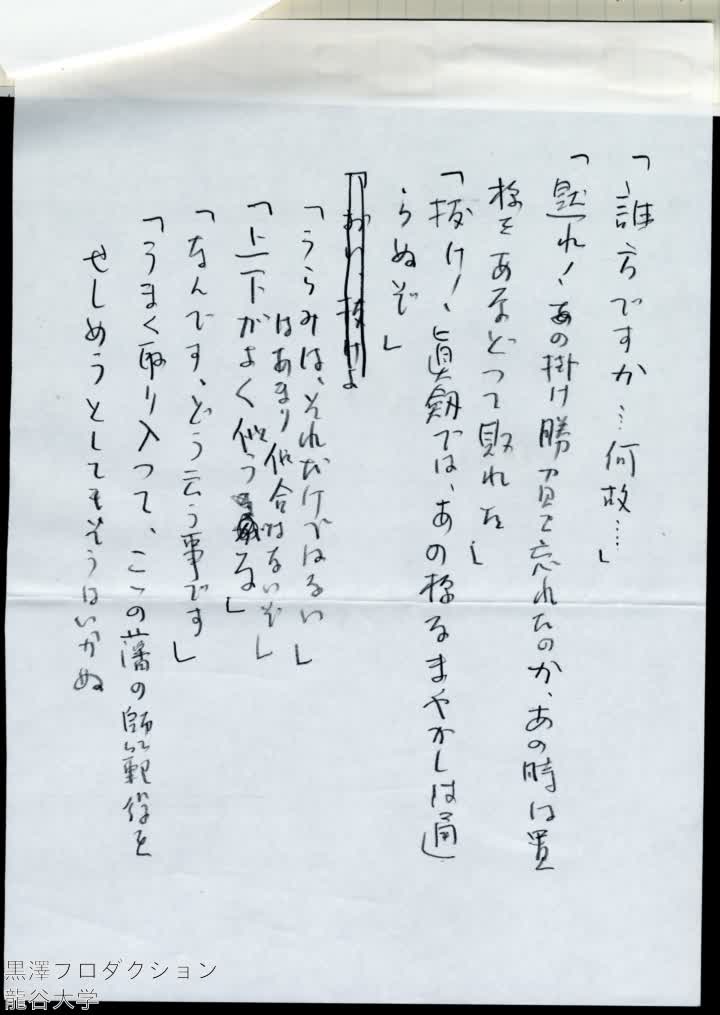 「誰方ですか…何故…」
「黙れ！あの掛け勝負を忘れたのか、あの時は置
様をあなどつて敗れた」
「抜け！、眞劔では、あの様なまやかしは通
らぬぞ」
「おい、抜けよ
「うらみは、それだけではない」
はあまり似合はないぞ」
「上下がよく似う な」
「なんです、どう云う事です」
「うまく取り入つて、こゝの藩の師範役を
せしめうとしてもそうはいかぬ
黒澤プロダクション
龍谷大学